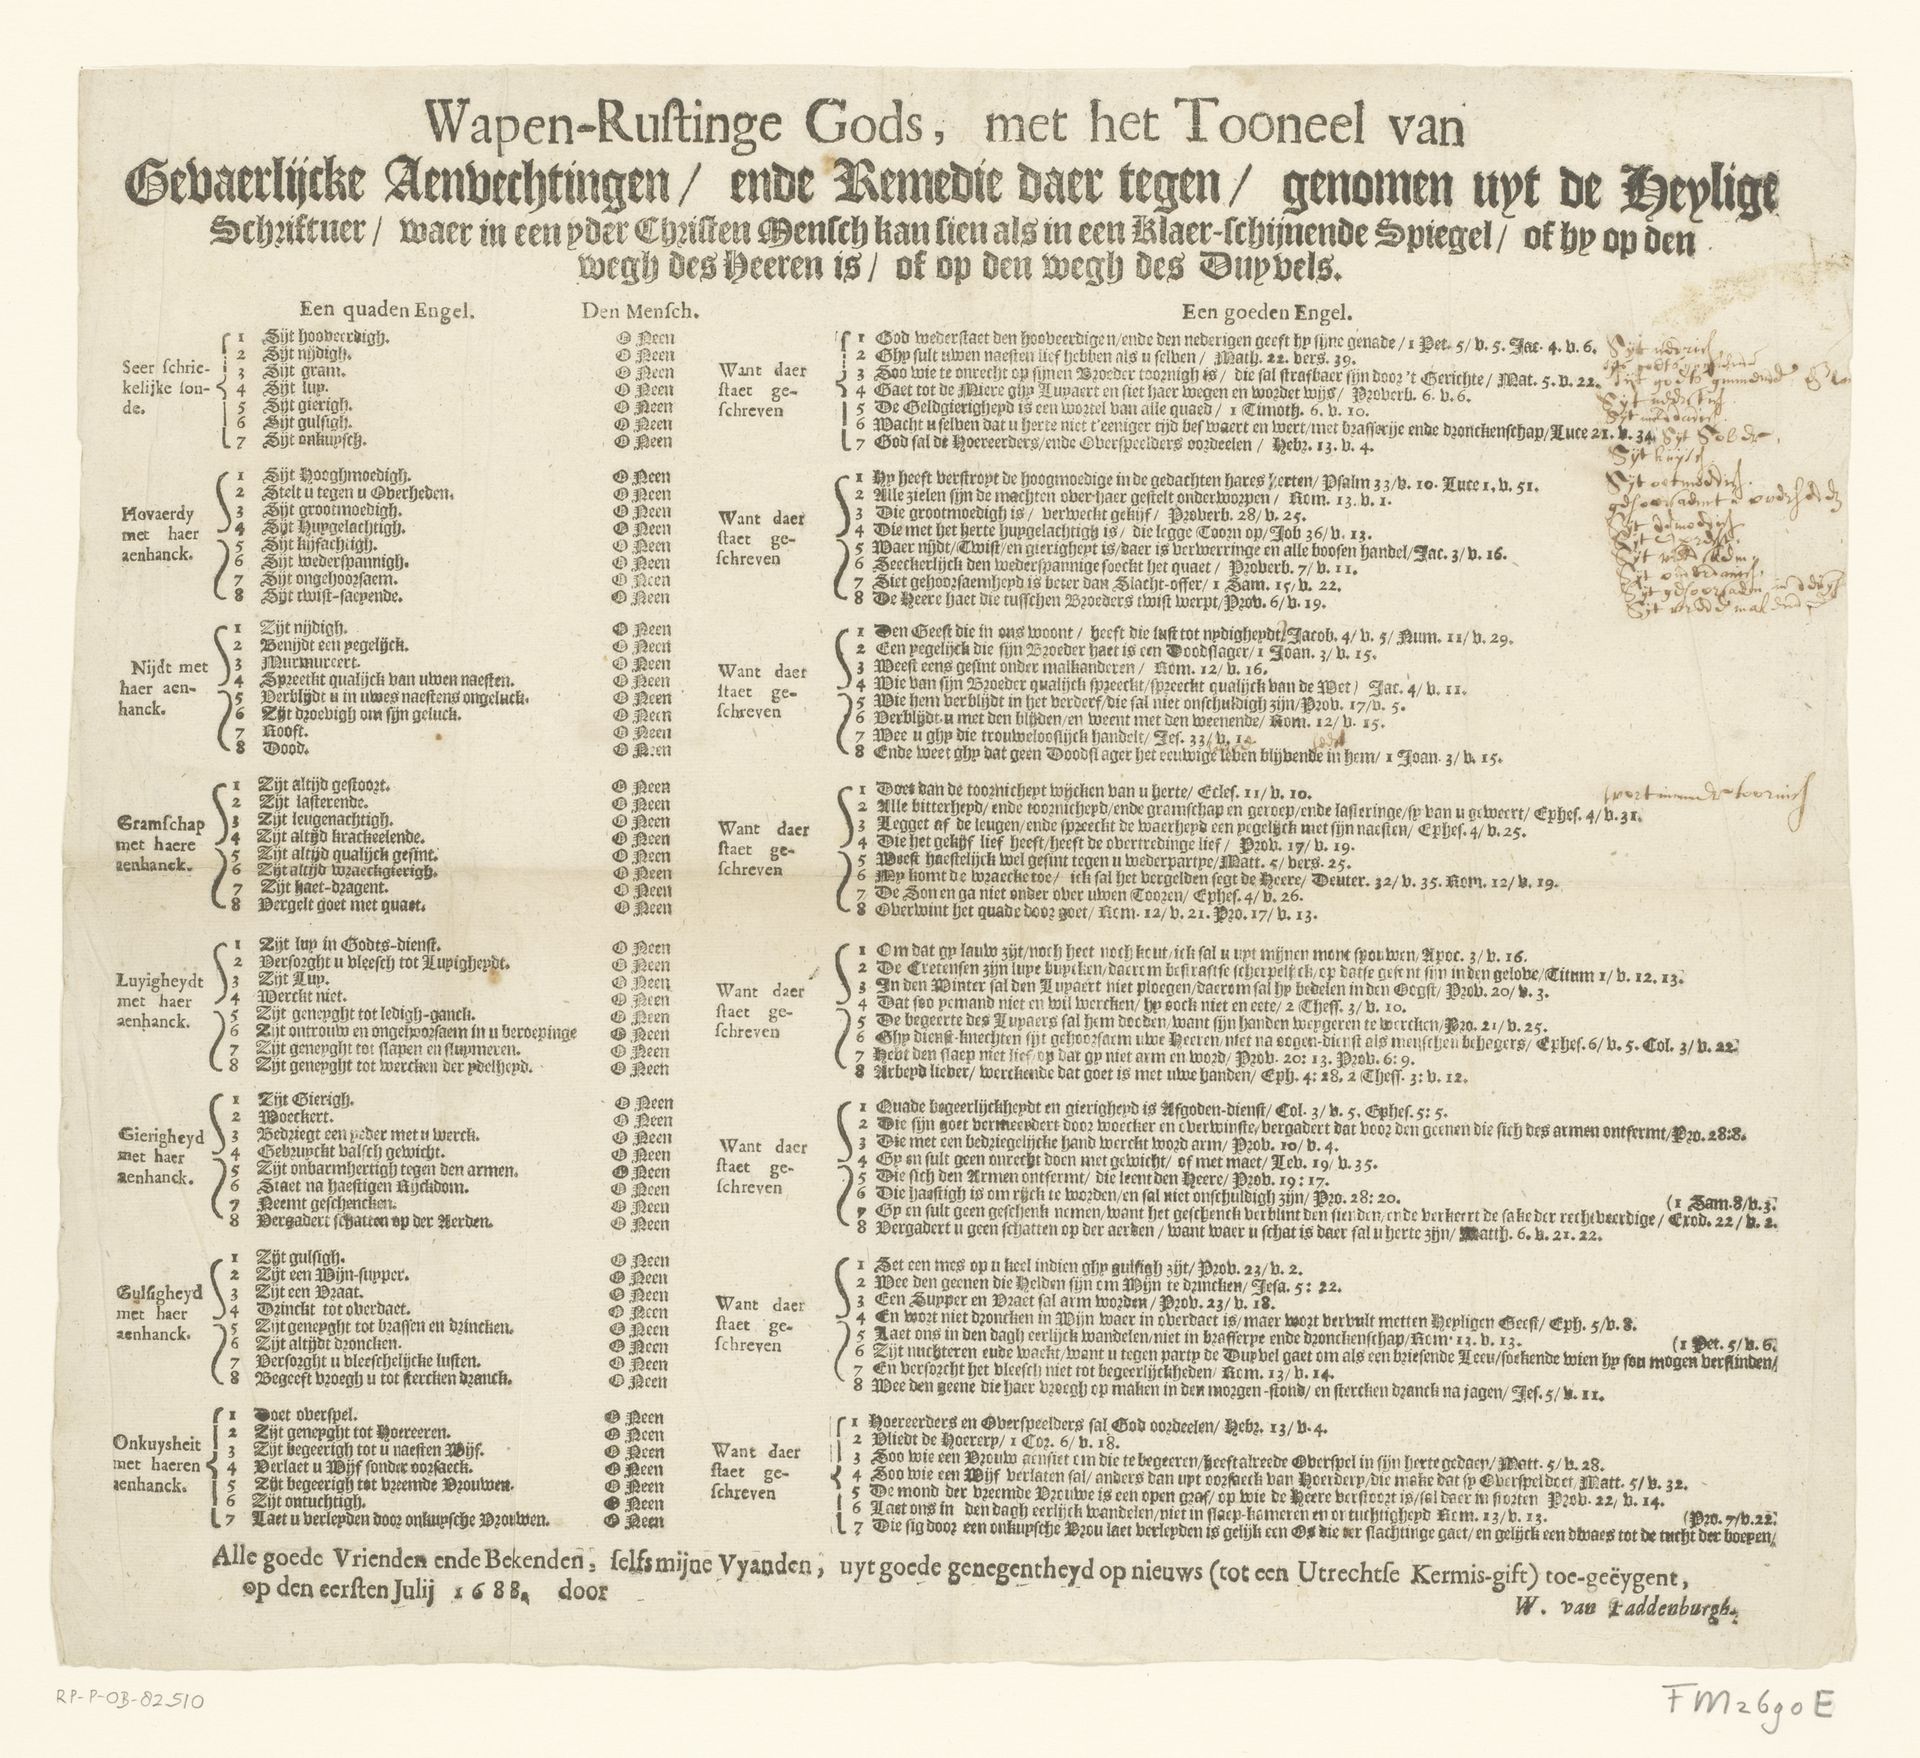 Wapen-Rustinge Gods, met het Tooneel van
Gevaerlijcke Aenvechtingen / ende Remedie daer tegen / genomen uyt de Heylige
Schriftuer / waer in een yder Christen Mensch kan sien als in een Klaer-schijnende Spiegel / of hy op den
wegh des Heeren is / of op den wegh des Duyvels.
Een quaden Engel. Den Mensch. Een goeden Engel.
Seer schric-
kelijke son-
de.
1 Sijt hooveerdigh.
2 Sijt nijdigh.
3 Sijt gram.
4 Sijt luy.
5 Sijt gierigh.
6 Sijt gulsigh.
7 Sijt onkuysch.
O Neen
O Neen
O Neen
O Neen
O Neen
O Neen
O Neen
Want daer
staet ge-
schreven
1 God wederstaet den hooveerdigen/ende den nederigen geeft hy sijne genade / 1 Pet. 5/ v. 5. Jac. 4. v. 6.
2 Ghy sult uwen naesten lief hebben als u selven / Math. 22. vers. 39.
3 Soo wie te onrecht op sijnen Broeder toornigh is / die sal strafbaer sijn door 't Gerichte / Mat. 5. v. 22.
4 Gaet tot de Miere ghy Luyaert en siet haer wegen en wordet wijs / Proverb. 6. v. 6.
5 De Geldgierigheyd is een wortel van alle quaed / 1 Timoth. 6. v. 10.
6 Wacht u selven dat u herte niet t'eeniger tijd beswaert en wert/met brasserije ende dronckenschap/Luce 21. v. 34
7 God sal de Hoereerders/ende Overspeelders oordeelen / Hebr. 13. v. 4.
Hovaerdy
met haer
aenhanck.
1 Sijt Hooghmoedigh.
2 Stelt u tegen u Overheden.
3 Sijt grootmoedigh.
4 Sijt Huygelachtigh.
5 Sijt kijfachtigh.
6 Sijt wederspannigh.
7 Sijt ongehoorsaem.
8 Sijt twist-saeyende.
O Neen
O Neen
O Neen
O Neen
O Neen
O Neen
O Neen
O Neen
Want daer
staet ge-
schreven
1 Hy heeft verstroyt de hoogmoedige in de gedachten hares herten/ Psalm 33/v. 10. Luce 1. v. 51.
2 Alle zielen sijn de machten over haer gestelt onderworpen / Rom. 13. v. 1.
3 Die grootmoedigh is / verweckt gekijf / Proverb. 28/ v. 25.
4 Die met het herte huygelachtigh is / die legge Toorn op/Job 36/ v. 13.
5 Waer nijdt/Twist/en gierigheyt is/daer is verwerringe en alle boosen handel/Jac. 3/ v. 16.
6 Seeckerlijck den wederspannige soeckt het quaet / Proverb. 7/ v. 11.
7 Siet gehoorsaemheyd is beter dan Slacht-offer/ 1 Sam. 15/ v. 22.
8 De Heere haet die tusschen Broeders twist werpt/Prov. 6/ v. 19.
Nijdt met
haer aen-
hanck.
1 Zijt nijdigh.
2 Benijdt een yegelijck.
3 Murmureert.
4 Spreeckt qualijck van uwen naesten.
5 Verblijdt u in uwes naestens ongeluck.
6 Zijt droevigh om sijn geluck.
7 Rooft.
8 Dood.
O Neen
O Neen
O Neen
O Neen
O Neen
O Neen
O Neen
O Neen
Want daer
staet ge-
schreven
1 Den Geest die in ons woont / heeft die lust tot nydigheydt/ Jacob. 4/ v. 5/ Num. 11/ v. 29.
2 Een yegelijck die sijn Broeder haet is een Doodslager/1 Joan. 3/ v. 15.
3 Weest eens gesint onder malkanderen / Rom. 12/ v. 16.
4 Wie van sijn Broeder qualijck spreeckt/spreeckt qualijck van de Wet) Jac. 4/ v. 11.
5 Wie hem verblijdt in het verderf/die sal niet onschuldigh zijn/Prov. 17/v. 5.
6 Verblijdt u met den blijden/en weent met den weenende/ Rom. 12/ v. 15.
7 Wee u ghy die trouwelooslijck handelt/ Jes. 33/ v. 1.
8 Ende weet ghy dat geen Doodslager het eeuwige leven blijvende in hem/ 1 Joan. 3/ v. 15.
Gramschap
met haere
aenhanck.
1 Zijt altijd gestoort.
2 Zijt lasterende.
3 Zijt leugenachtigh.
4 Zijt altijd krackeelende.
5 Zijt altijd qualijck gesint.
6 Zijt altijd wraeckgierigh.
7 Zijt haet-dragent.
8 Vergelt goet met quaet.
O Neen
O Neen
O Neen
O Neen
O Neen
O Neen
O Neen
O Neen
Want daer
staet ge-
schreven
1 Doet dan de toornicheyt wijcken van u herte/ Eccles. 11/ v. 10.
2 Alle bitterheyd/ ende toornicheyd/ende gramschap en geroep/ende lasteringe/sy van u geweert/ Ephes. 4/ v. 31.
3 Legget af de leugen/ende spreeckt de waerheyd een yegelijck met sijn naesten/ Ephes. 4/ v. 25.
4 Die het gekijf lief heeft/heeft de overtredinge lief / Prov. 17/ v. 19.
5 Weest haestelijck wel gesint tegen u wederpartye/Matt. 5/ vers. 25.
6 My komt de wraecke toe/ ick sal het vergelden segt de Heere/ Deuter. 32/ v. 35. Rom. 12/ v. 19.
7 De Son en ga niet onder over uwen Tooren/ Ephes. 4/ v. 26.
8 Overwint het quade door goet/ Rom. 12/ v. 21. Pro. 17/ v. 13.
Luyigheydt
met haer
aenhanck.
1 Zijt luy in Godts-dienst.
2 Versorght u vleesch tot Luyigheydt.
3 Zijt Luy.
4 Werckt niet.
5 Zijt geneyght tot ledigh-ganck.
6 Zijt ontrouw en ongehoorsaem in u beroepinge
7 Zijt geneyght tot slapen en sluymeren.
8 Zijt geneyght tot wercken der ydelheyd.
O Neen
O Neen
O Neen
O Neen
O Neen
O Neen
O Neen
O Neen
Want daer
staet ge-
schreven
1 Om dat gy lauw zijt/noch heet noch kout/ick sal u uyt mijnen mont spouwen/Apoc. 3/ v. 16.
2 De Cretensen zijn luye buycken/daerom bestraftse scherpelijck/op datse gesont sijn in den gelove/Titum 1/ v. 12. 13.
3 In den Winter sal den Luyaert niet ploegen/daerom sal hy bedelen in den Oogst/ Prov. 20/ v. 3.
4 Dat soo yemand niet en wil wercken/ hy oock niet en eete/ 2 Thess. 3/ v. 10.
5 De begeerte des Luyaers sal hem dooden/want sijn handen weygeren te wercken/Pro. 21/ v. 25.
6 Ghy dienst-knechten sijt gehoorsaem uwe Heeren/niet na oogen-dienst als menschen behagers/ Ephes. 6/ v. 5. Col. 3/ v. 22.
7 Hebt den slaep niet lief/op dat gy niet arm en word/ Prov. 20: 13. Prov. 6: 9.
8 Arbeyd liever/ werckende dat goet is met uwe handen/ Eph. 4: 28. 2 Thess. 3: v. 12.
Gierigheyd
met haer
aenhanck.
1 Zijt Gierigh.
2 Woeckert.
3 Bedriegt een yeder met u werck.
4 Gebruyckt valsch gewicht.
5 Zijt onbarmhertigh tegen den armen.
6 Staet na haestigen Rijckdom.
7 Neemt geschencken.
8 Vergadert schatten op der Aerden.
O Neen
O Neen
O Neen
O Neen
O Neen
O Neen
O Neen
O Neen
Want daer
staet ge-
schreven
1 Quade begeerlijckheydt en gierigheyd is Afgoden-dienst/ Col. 3/ v. 5. Ephes. 5: 5.
2 Die sijn goet vermeerdert door woecker en overwinste/vergadert dat voor den geenen die sich des armen ontfermt/Pro. 28:8.
3 Die met een bedriegelijcke hand werckt word arm/ Prov. 10/ v. 4.
4 Gy en sult geen onrecht doen met gewicht/ of met maet/ Lev. 19/ v. 35.
5 Die sich den Armen ontfermt/ die leent den Heere/ Prov. 19: 17.
6 Die haestigh is om rijck te worden/en sal niet onschuldigh zijn/ Pro. 28: 20.
(1 Sam. 8/v. 3.
7 Gy en sult geen geschenk nemen/want het geschenck verblint den sienden/ende verkeert de sake der rechtveerdige/ Exod. 22/ v. 2.
8 Vergadert u geen schatten op der aerden / want waer u schat is daer sal u herte zijn/ Matth. 6. v. 21. 22.
Gulsigheyd
met haer
aenhanck.
1 Zijt gulsigh.
2 Zijt een Wijn-suyper.
3 Zijt een Vraat.
4 Drinckt tot overdaet.
5 Zijt geneyght tot brassen en drincken.
6 Zijt altijdt droncken.
7 Versorght u vleeschelijcke lusten.
8 Begeeft vroegh u tot stercken dranck.
O Neen
O Neen
O Neen
O Neen
O Neen
O Neen
O Neen
O Neen
Want daer
staet ge-
schreven
1 Set een mes op u keel indien ghy gulsigh zijt/ Prov. 23/ v. 2.
2 Wee den geenen die Helden sijn om Wijn te drincken/ Jesa. 5: 22.
3 Een Suyper en Vraet sal arm worden / Prov. 23/ v. 18.
4 En wort niet droncken in Wijn waer in overdaet is/maer wort vervult metten Heyligen Geest/ Eph. 5/ v. 8.
5 Laet ons in den dagh eerlijck wandelen/niet in brasserye ende dronckenschap/Rom. 13. v. 13.
(1 Pet. 5/ v. 6.
6 Zijt nuchteren ende waekt/want u tegen party de Duyvel gaet om als een briesende Leeu/soekende wien hy sou mogen verslinden/
7 En versorcht het vleesch niet tot begeerlijckheden/ Rom. 13/ v. 14.
8 Wee den geene die haer vroegh op maken in den morgen-stond/ en stercken dranck na jagen/ Jes. 5/ v. 11.
Onkuysheit
met haeren
aenhanck.
1 Doet overspel.
2 Zijt geneyght tot Hoereeren.
3 Zijt begeerigh tot u naesten Wijf.
4 Verlaet u Wijf sonder oorsaeck.
5 Zijt begeerigh tot vreemde Vrouwen.
6 Zijt ontuchtigh.
7 Laet u verleyden door onkuysche Vrouwen.
O Neen
O Neen
O Neen
O Neen
O Neen
O Neen
O Neen
Want daer
staet ge-
schreven
1 Hoereerders en Overspeelders sal God oordeelen/ Hebr. 13/ v. 4.
2 Vliedt de Hoerery/ 1 Cor. 6/ v. 18.
3 Soo wie een Vrouw aensiet om die te begeeren/heeft alreede Overspel in sijn herte gedaen/ Matt. 5/ v. 28.
4 Soo wie een Wijf verlaten sal/ anders dan uyt oorsaeck van Hoerdery/die make dat sy Overspel doet/ Matt. 5/ v. 32.
5 De mond der vreemde Vrouwe is een open graf/ op wie de Heere verstoort is/sal daer in storten Prov. 22/ v. 14.
6 Laet ons in den dagh eerlijck wandelen/niet in slaep-kameren en ontuchtigheyd Rom. 13/ v. 13.
(Pro. 7/v. 22.
7 Die sig door een onkuysche Vrou laet verleyden is gelijk een Os die ter slachtinge gaet/ en gelijck een dwaes tot de tucht der boeyen/
Alle goede Vrienden ende Bekenden, selfs mijne Vyanden, uyt goede genegentheyd op nieuws (tot een Utrechtse Kermis-gift) toe-geëygent,
op den eersten Julij 1688, door
W. van Laddenburgh.
RP-P-OB-82.510
FM2690E